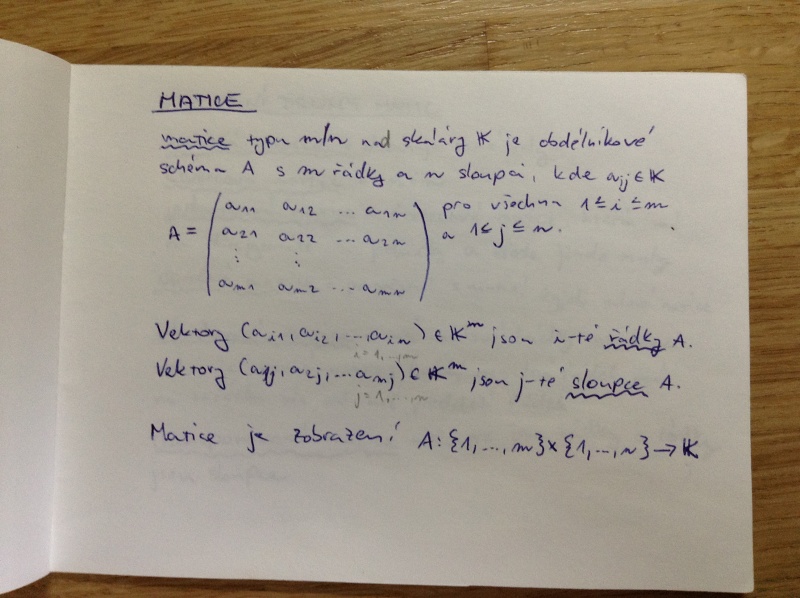 MATICE
matice typu m/n nad skaláry 𝕂 je obdélníkové
schéma A s m řádky a n sloupci, kde aij ∈ 𝕂
pro všechna 1 ≤ i ≤ m
a 1 ≤ j ≤ n.
A = ( a11 a12 ... a1n
a21 a22 ... a2n
⋮ ⋮
am1 am2 ... amn )
Vektory (ai1, ai2, ..., ain) ∈ 𝕂^m jsou i-té řádky A.
i = 1, ..., m
Vektory (a1j, a2j, ... amj) ∈ 𝕂^m jsou j-té sloupce A.
j = 1, ..., n
Matice je zobrazení A: {1, ..., m} × {1, ..., n} → 𝕂